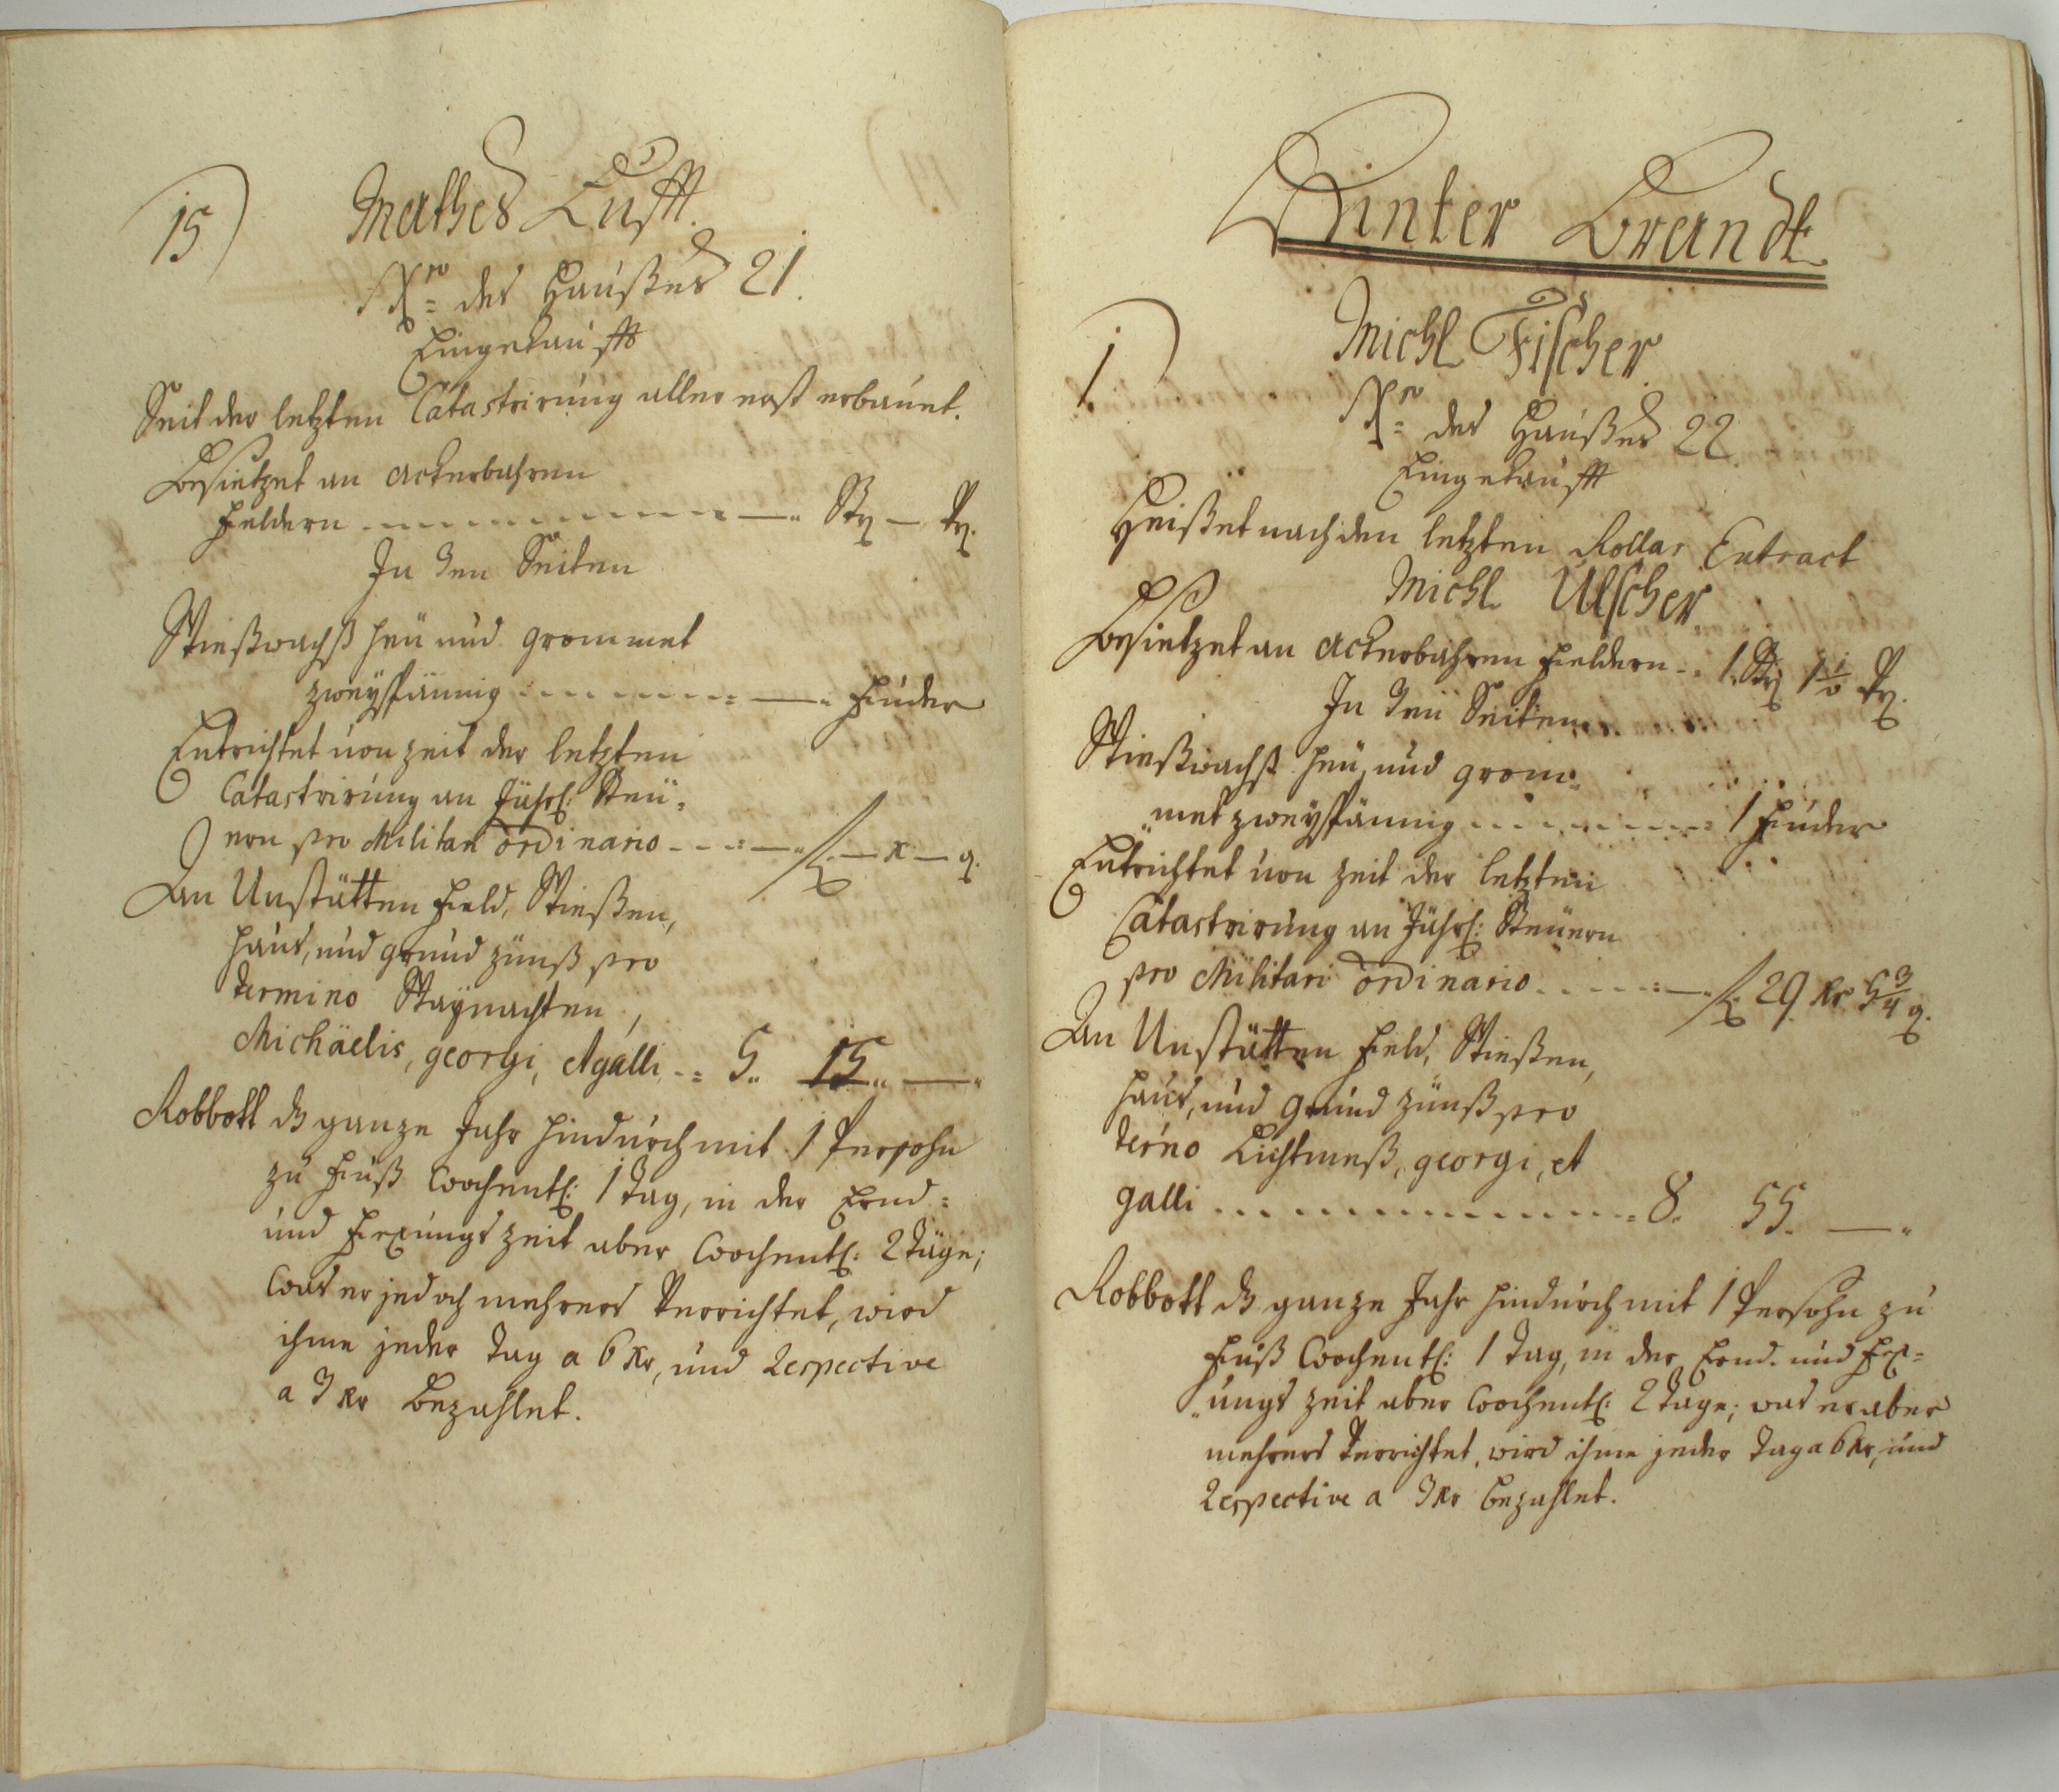 15)
Mathes Lufft.
Nro des Haußes 21.
Eingekaufft
Seit der letzten Catastrirung aller erst erbauet.
Besietzet an Ackerbahren
Feldern — Str — Vr.
In den Seiten
Wießwachß Heü und Grommet
zweyspännig — Fuder
Entrichtet von Zeit der letzten
Catastrirung an Jährl: Steü-
ern pro Militari ordinario — f — x — q.
An Unstätten Feld, Wießen,
Hauß, und Grund Zünß pro
termino Waÿnachten,
Michäelis, georgi, et galli 5. 15. —
Robbott ds ganze Jahr hindurch mit 1 Persohn
zu Fuß Wochentl: 1 Tag, in der Ernd-
und Fexungs Zeit aber Wochentl: 2 Täge;
Was er jedoch mehrers Verrichtet, wird
ihme jeder Tag a 6 Kr, und Respective
a 3 Kr Bezahlet.
Hinter Brandt
1.)
Michl Fischer
Nro des Haußes 22.
Eingekaufft
Heißet nach den letzten Rollar Extract
Michl Ulscher
Besietzet an Ackerbahren Feldern 1. Str 1 1/2 Vr.
In den Seiten
Wießwachß Heü, und Grom-
met zweyspännig 1 Fuder
Entrichtet von Zeit der letzten
Catastrirung an Jährl: Steüern
pro Militari ordinario — f 29 Kr 5 3/4 q.
An Unstätten Feld, Wießen,
Hauß, und Grund Zünß pro
terno Lichtmeß, georgi, et
galli 8. 55. —
Robbott ds ganze Jahr hindurch mit 1 Persohn zu
Fuß Wochentl: 1 Tag, in der Ernd- und Fex-
ungs Zeit aber Wochentl: 2 Tage; was er aber
mehrers Verrichtet, wird ihme jeder Tag a 6 Kr, und
Respective a 3 Kr Bezahlet.